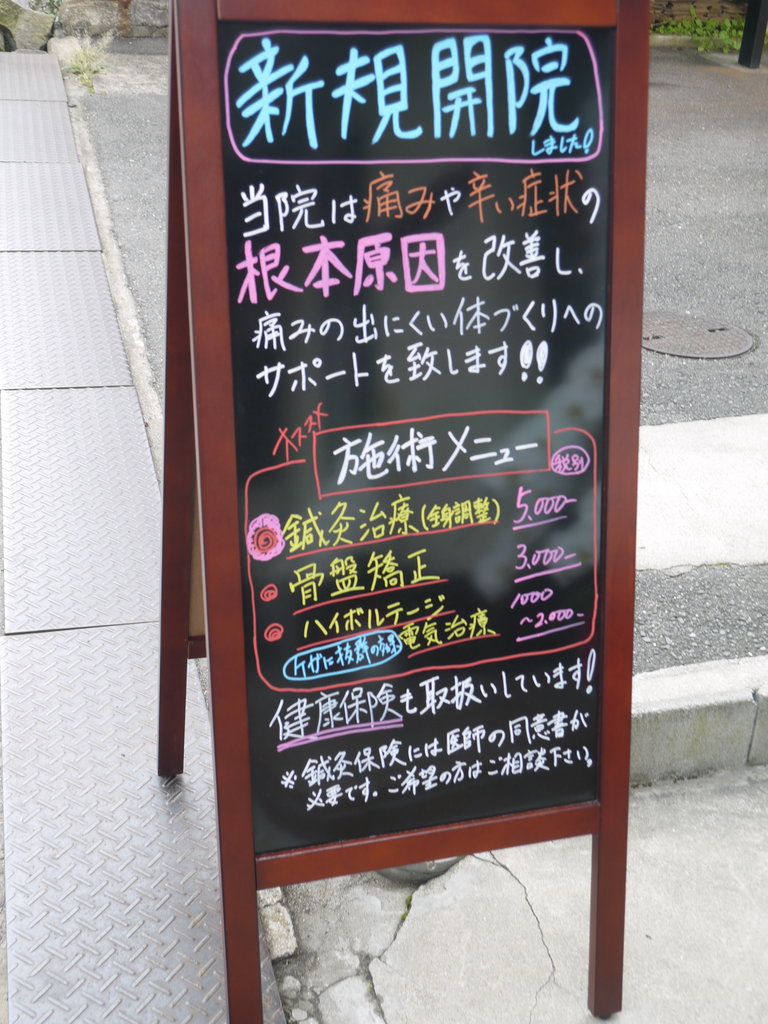 新規開院
しました!
当院は痛みや辛い症状の
根本原因を改善し、
痛みの出にくい体づくりへの
サポートを致します!!
オススメ
施術メニュー
税別
鍼灸治療(全身調整) 5.000-
骨盤矯正 3.000-
ハイボルテージ 1000
電気治療 ~2.000-
ケガに抜群の効果
健康保険も取扱いしています!
※鍼灸保険には医師の同意書が
必要です。ご希望の方はご相談下さい。